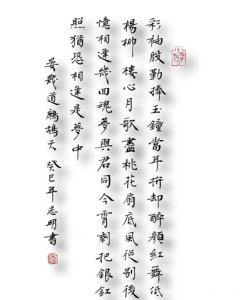 彩袖殷勤捧玉鐘當年拚却醉顏紅舞低
楊柳樓心月歌盡桃花扇底風從別後
憶相逢幾回魂夢與君同今宵剩把銀釭
照猶恐相逢是夢中
晏幾道鷓鴣天 癸巳年志明書